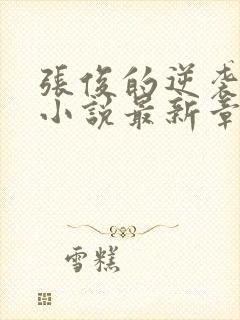 張俊的逆襲
小説最新章
雪糕